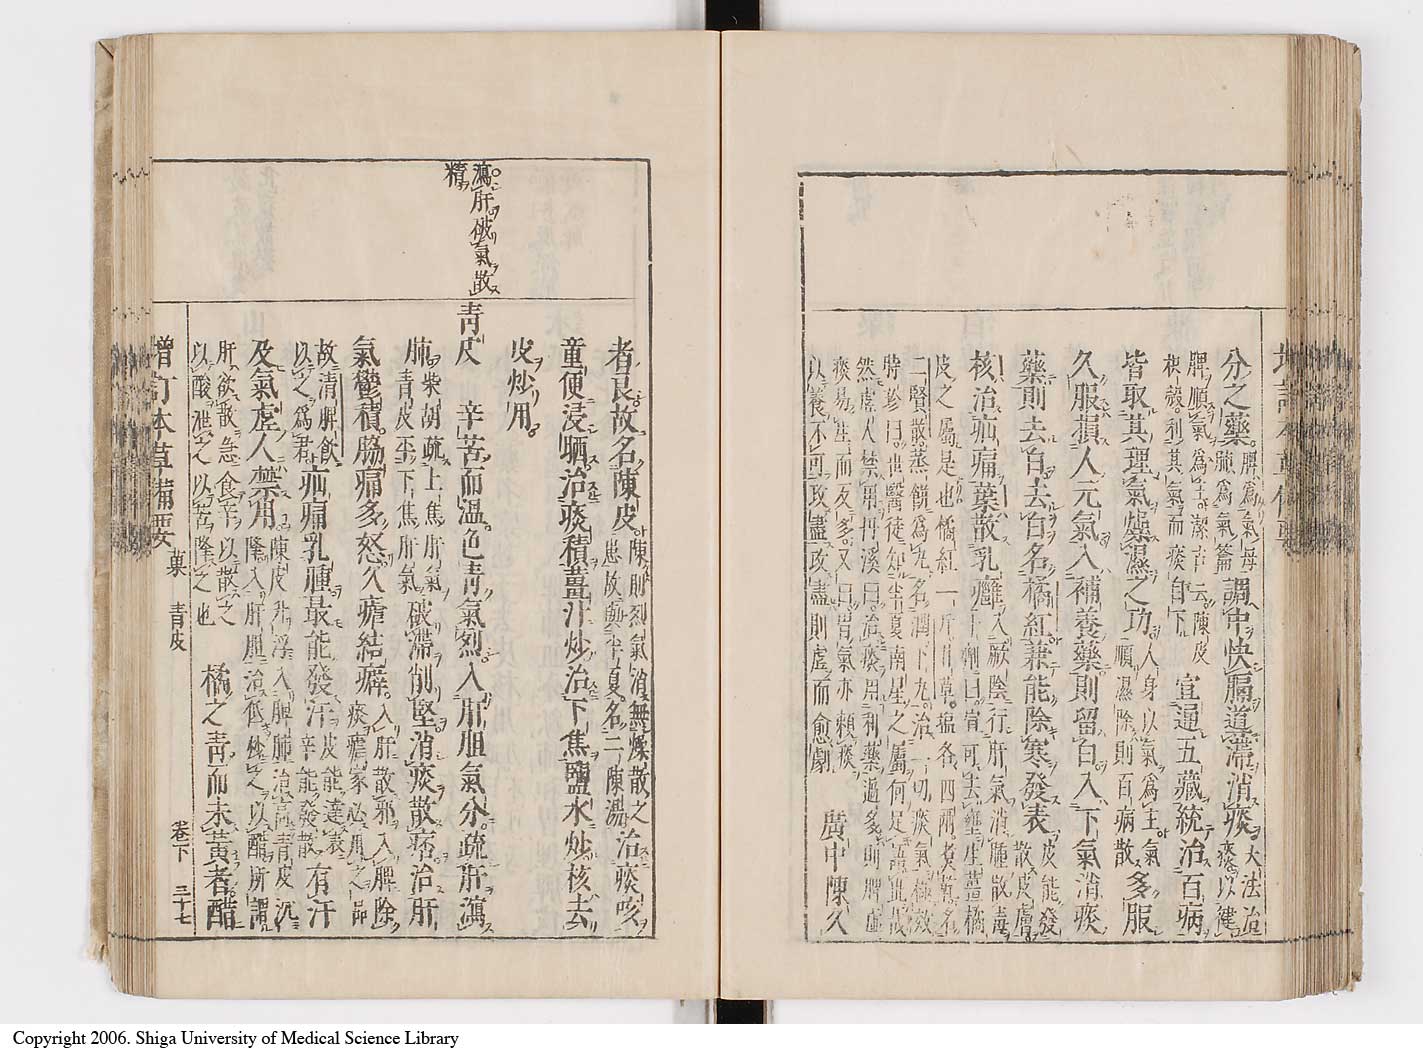 分之藥脾為氣母肺為氣籥調中快膈道滯消痰大法治痰以健
脾順氣為主潔古云陳皮枳殻利其氣而痰自下宣通五臟統治百病
皆取其理氣燥濕之功人身以氣為主氣順濕除則百病散多服
久服損人元氣入補養藥則留白入下氣消痰
藥則去白去白名橘紅兼能除寒發表皮能發散皮膚
核治疝痛葉散乳癰入厥陰行肝氣消腫散毒
皮之屬是也橘紅一斤甘草鹽各四兩煮乾名
二賢散蒸餅為丸名潤下丸治一切痰氣極效
時珍曰世醫徒知半夏南星之屬何足語此哉
然虛人禁用丹溪曰治痰用利藥過多則脾虛
痰易生而反多又曰胃氣亦賴痰
以養不可攻盡攻盡則虛而愈劇廣中陳久
者良故名陳皮陳則烈氣消無燥散之患故與半夏名二陳湯治痰咳
童便浸晒治痰積薑汁炒治下焦鹽水炒核去
皮炒用
瀉肝破氣散
精
青皮辛苦而温色青氣烈入肝膽氣分疏肝瀉
肺柴胡疏上焦肝氣青皮平下焦肝氣破滯削堅消痰散痞治肝
氣鬱積脇痛多怒久瘧結癖入肝散邪入脾除痰瘧家必用之品
故清脾飲以之為君疝痛乳腫最能發汗皮能達表辛能發散有汗
及氣虛人禁用陳皮升浮入脾肺治高青皮沉降入肝膽治低炒之以醋所謂
肝欲散急食辛以散之以酸泄之以苦降之也橘之青而未黃者醋
增訂本草備要 菓 青皮 卷下 三十七
Copyright 2006. Shiga University of Medical Science Library